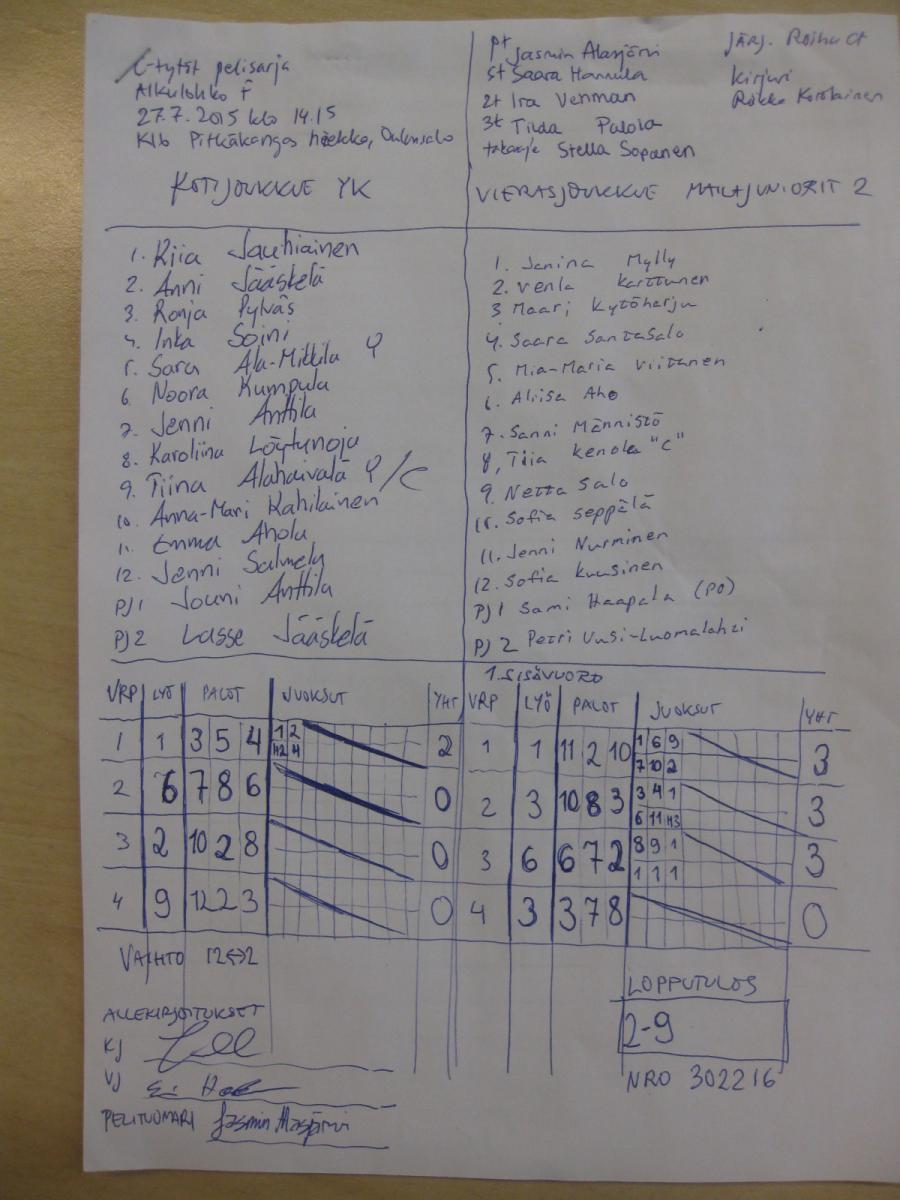 C-tytöt pelisarja
Alkulohko F
27.7.2015 klo 14.15
Pitkäkangas hiekka, Oulunsalo
KOTIJOUKKUE YK
PT Jasmin Alasjärvi
ST Saara Hannula
2t Ira Venman
3t Tilda Palola
takaraja Stella Sopanen
JÄRJ. Roihu
Kirjuri
VIERASJOUKKUE MAILAJUNIORIT 2
1. Riia Jauhiainen
2. Anni Jääskelä
3. Ronja Pylväs
4. Inka Soini
5. Sara Ala-Mikkila
6 Noora Kumpula
7. Jenni Anttila
8. Karoliina Löytynoja
9. Tiina Alahaivala /C
10. Anna-Mari Kahilainen
11. Emma Ahola
12. Jenni Salmela
PJ1 Jouni Anttila
PJ2 Lasse Jääskelä
1. Janina Mylly
2. Venla Karttunen
3 Maari Kytöharju
4. Saara Santasalo
5. Mia-Maria Viitanen
6. Aliisa Aho
7. Sanni Männistö
8, Tiia Kenola "C"
9. Netta Salo
10. Sofia Seppälä
11. Jenni Nurminen
12. Sofia Kuusinen
PJ 1 Sami Haapala (PO)
PJ 2 Petri Uusi-Luomalahti
1. SISÄVUORO
VRP LYÖ PALOT JUOKSUT YHT
1 1 3 5 4 1 2 H2 4 2
2 6 7 8 6 0
3 2 10 2 8 0
4 9 12 2 3 0
VAIHTO 12↔2
VRP LYÖ PALOT JUOKSUT YHT
1 1 11 2 10 1 6 9 7 10 2 3
2 3 10 8 3 3 4 1 6 11 H3 3
3 6 6 7 2 8 9 1 1 1 1 3
4 3 3 7 8 0
LOPPUTULOS
2-9
NRO 302216
ALLEKIRJOITUKSET
KJ
VJ
PELITUOMARI Jasmin Alasjärvi